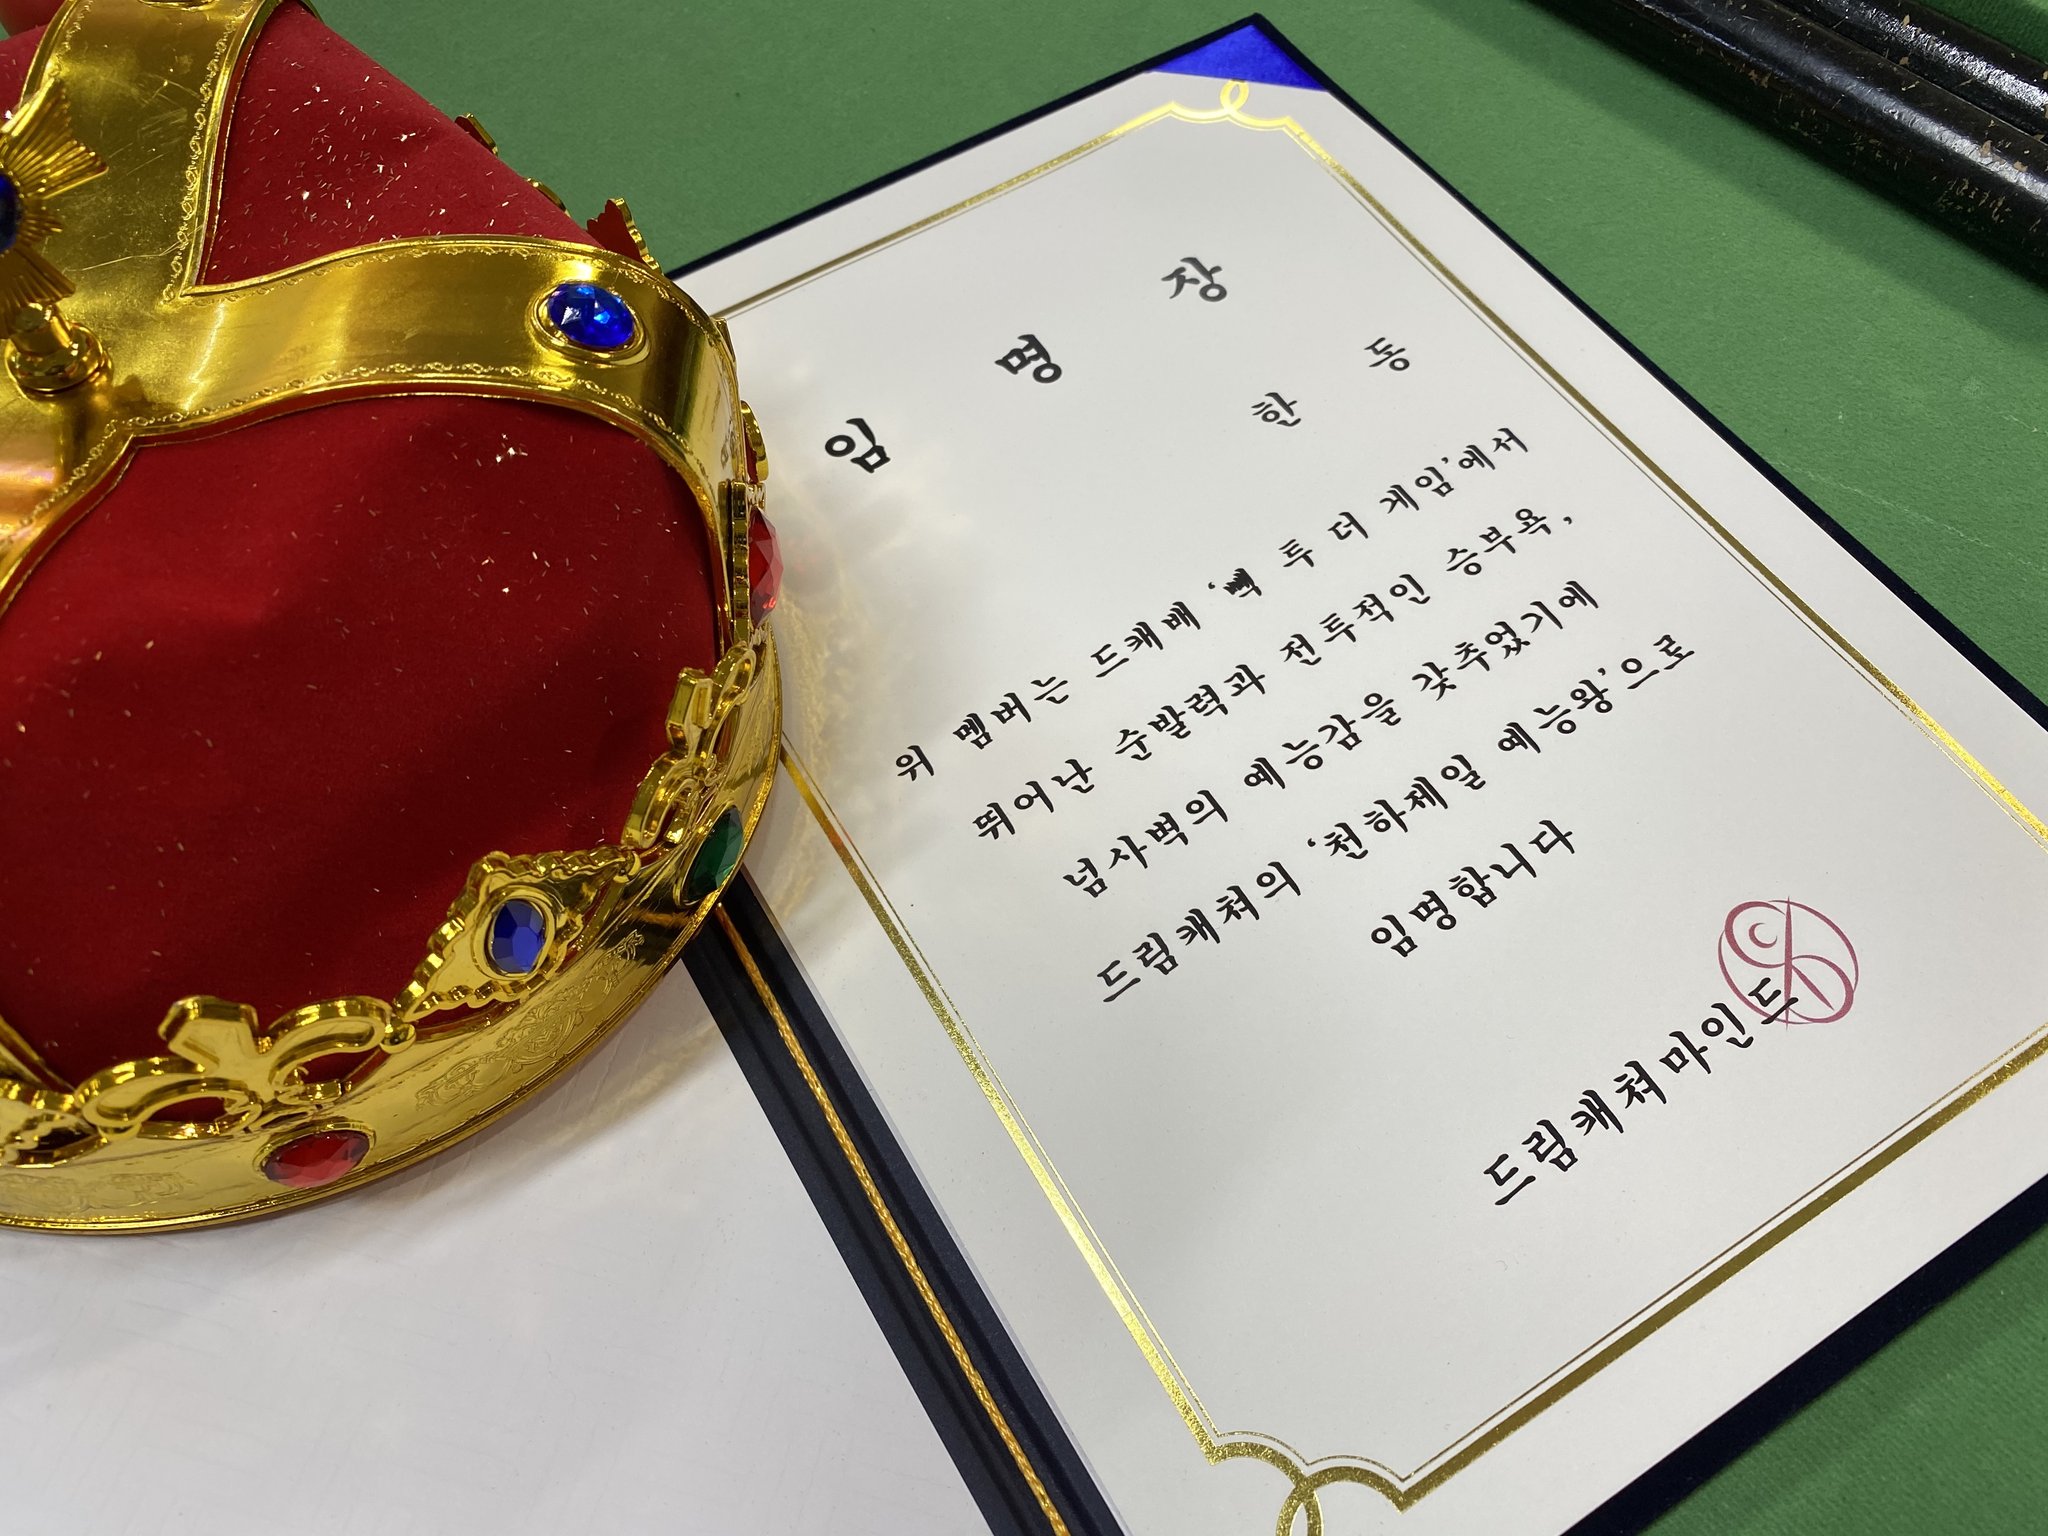 임 명 장
한 동
위 멤버는 드캐배 '빽 투 더 게임'에서
뛰어난 순발력과 전투적인 승부욕,
넘사벽의 예능감을 갖추었기에
드림캐쳐의 '천하제일 예능왕'으로
임명합니다
드림캐쳐마인드